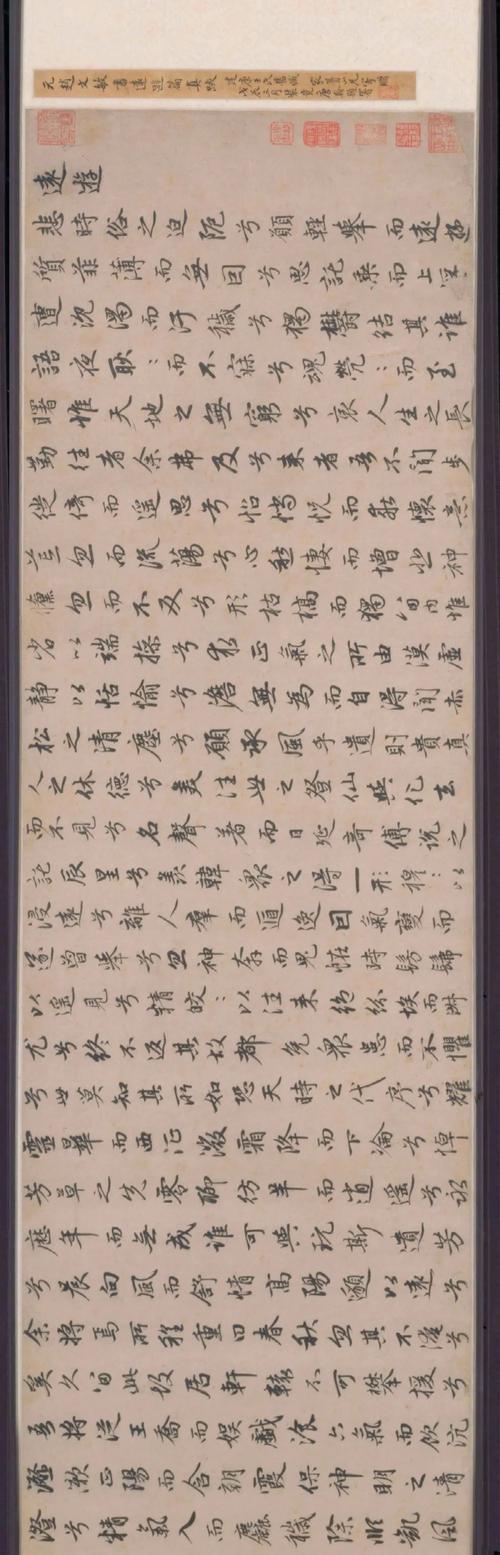 元趙文敏書遠遊篇真跡
遠遊
悲時俗之迫阨兮願輕舉而遠遊
質菲薄而無因兮思託乘而上浮
遭沈濁而汙穢兮獨鬱結其誰
語夜耿〻而不寐兮魂煢〻而至
曙惟天地之無窮兮哀人生之長
勤往者余弗及兮来者吾不聞步
徙倚而遥思兮怊惝怳而乖懷意
荒忽而流蕩兮心愁悽而增悲神
儵忽而不反兮形枯槁而獨留惟
省以端操兮求正氣之所由漠虛
靜以恬愉兮澹無為而自得聞赤
松之清塵兮願承風乎遺則貴真
人之休德兮美往世之登仙與化去
而不見兮名聲著而日延奇傅說之
託辰星兮羨韓衆之得一形穆〻以
浸遠兮離人羣而遁逸因氣變而
遂曾舉兮忽神奔而鬼怪時髣髴
以遥見兮精皎〻以往来絶氛埃而淑
尤兮終不返其故都免衆患而不懼
兮世莫知其所如恐天時之代序兮耀
靈曄而西征微霜降而下淪兮悼
芳草之先零聊仿佯而逍遥兮永
歷年而無成誰可與玩斯遺芳
兮晨向風而舒情高陽邈以遠兮
余將焉所程重曰春秋忽其不淹兮
奚久留此故居軒轅不可攀援兮
吾將從王喬而娛戲湌六氣而飲沆
瀣漱正陽而含朝霞保神明之清
澄兮精氣入而麤穢除順凱風